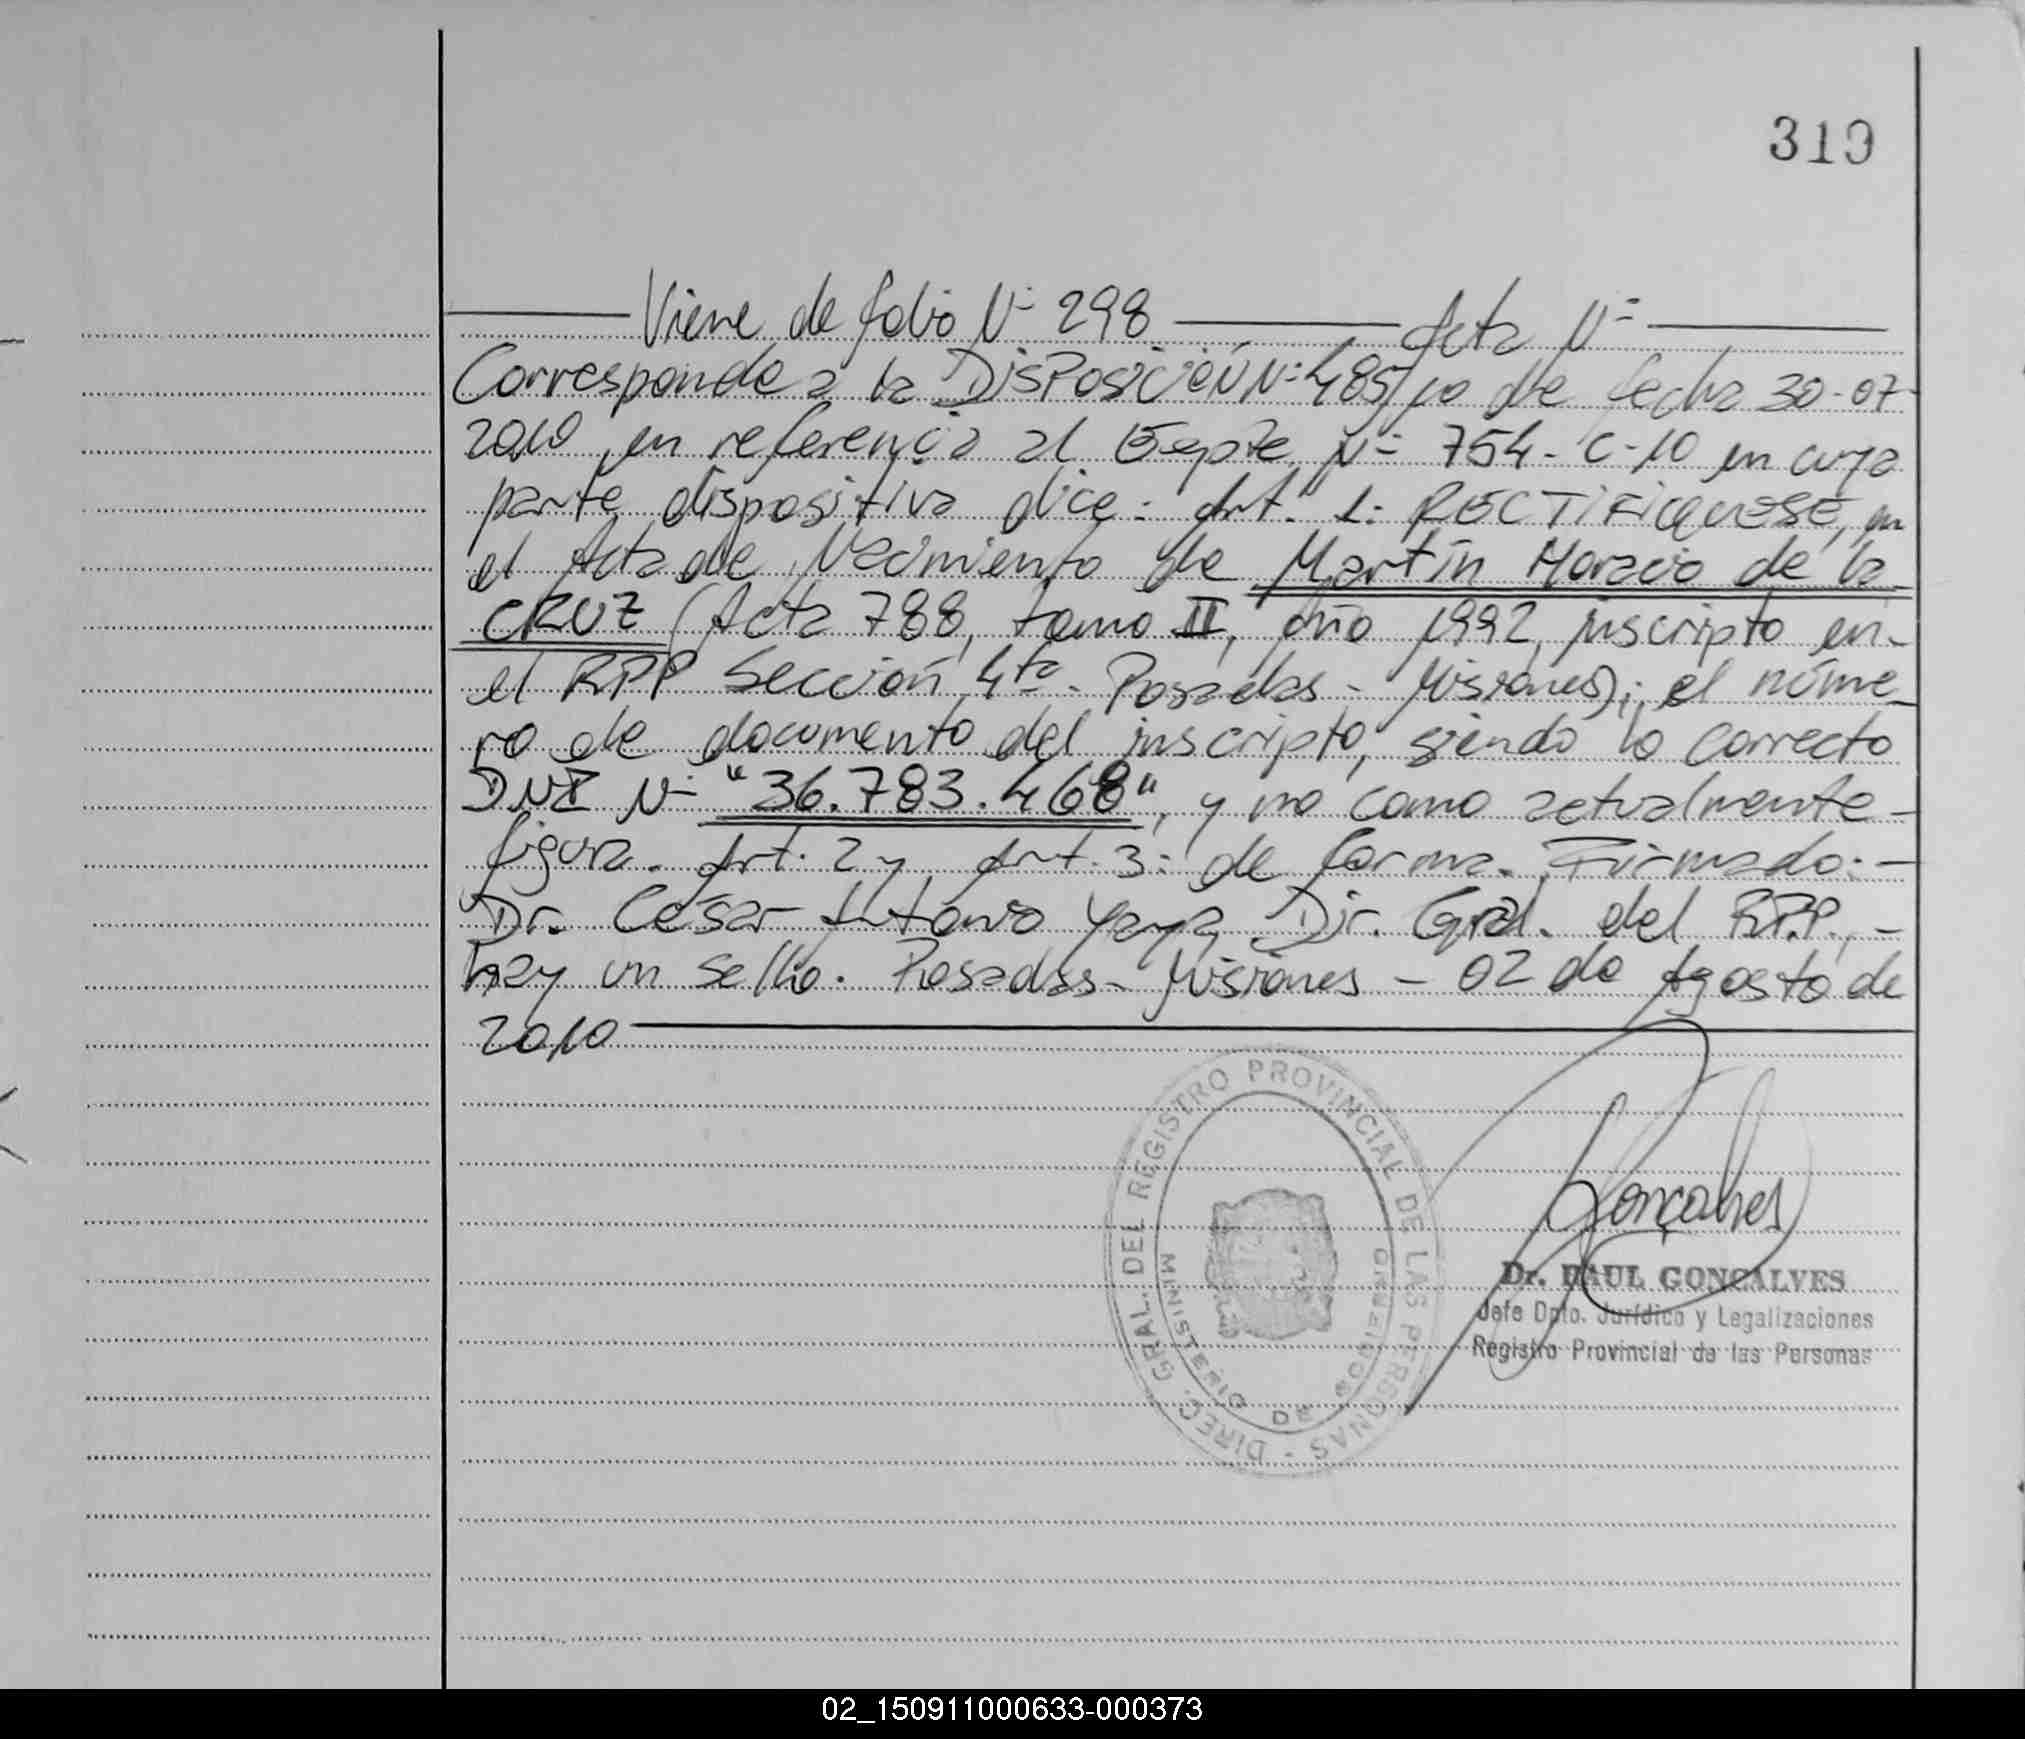 319
Viene de folio Nº 298 Acta Nº
Corresponde a la DISPOSICIÓN Nº 485/10 de fecha 30-07-
2010 en referencia al Expte Nº 754-C-10 en cuya
parte dispositiva dice: Art. 1: RECTIFIQUESE, en
el Acta de Nacimiento de Martín Horacio de la
CRUZ (Acta 788, tomo II, año 1992, inscripto en-
el RPP Sección 4ta - Posadas - Misiones); el núme-
ro de documento del inscripto, siendo lo correcto
DNI Nº "36.783.468", y no como actualmente-
figura. Art. 2 y Art. 3: de forma. Firmado:-
Dr. César Antonio Yaya Dir. Gral. del RPP.,-
hay un sello. Posadas - Misiones - 02 de Agosto de
2010
DIREC. GRAL. DEL REGISTRO PROVINCIAL DE LAS PERSONAS -
MINISTERIO DE GOBIERNO
Gonçalves
Dr. RAUL GONCALVES
Jefe Dpto. Jurídico y Legalizaciones
Registro Provincial de las Personas
02_150911000633-000373